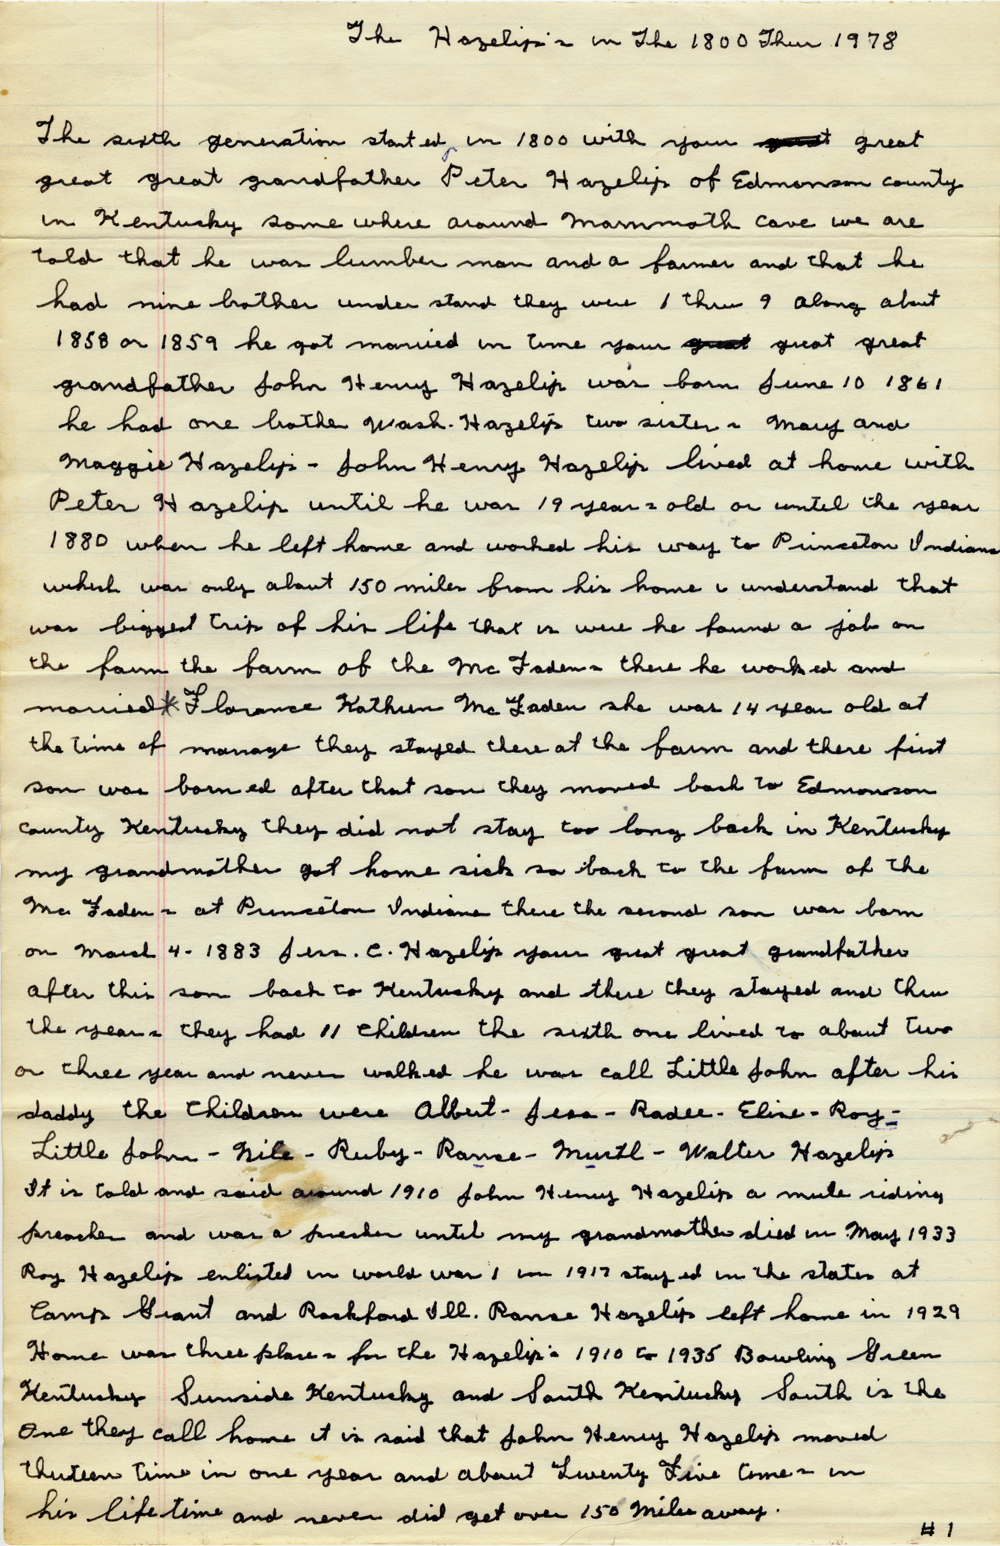 The Hazelip's in The 1800 Thru 1978
The sixth generation started in 1800 with your great
great great grandfather Peter Hazelip of Edmonson county
in Kentucky some where around Mammoth Cave we are
told that he was lumber man and a farmer and that he
had nine brother under stand they were 1 thru 9 along about
1858 or 1859 he got married in time your great great
grandfather John Henry Hazelip was born June 10 1861
he had one brother Wash. Hazelip two sister s Mary and
Maggie Hazelip - John Henry Hazelip lived at home with
Peter Hazelip until he was 19 year s old or until the year
1880 when he left home and worked his way to Princeton Indiana
which was only about 150 miles from his home i understand that
was biggest trip of his life that is were he found a job on
the farm the farm of the Mc Faden s there he worked and
married * Florance Kathren Mc Faden she was 14 year old at
the time of marrage they stayed there at the farm and there first
son was borned after that son they moved back to Edmonson
county Kentucky they did not stay too long back in Kentucky
my grandmother got home sick so back to the farm of the
Mc Faden s at Princeton Indiana there the second son was born
on March 4 - 1883 Jess. C. Hazelip your great great grandfather
after this son back to Kentucky and there they stayed and thru
the year s they had 11 children the sixth one lived to about two
or three year and never walked he was call Little John after his
daddy the children were Albert - Jess - Radee - Elire - Roy -
Little John - Nile - Ruby - Ranse - Murtl - Walter Hazelip
It is told and said around 1910 John Henry Hazelip a mule riding
preacher and was a precher until my grandmother died in May 1933
Roy Hazelip enlisted in world war 1 in 1917 stayed in the states at
Camp Grant and Rockford Ill. Ranse Hazelip left home in 1929
Home was three place s for the Hazelip's 1910 to 1935 Bowling Green
Kentucky Sunside Kentucky and South Kentucky South is the
one they call home it is said that John Henry Hazelip moved
thirteen time in one year and about Twenty Five time s in
his life time and never did get over 150 Miles away.
# 1